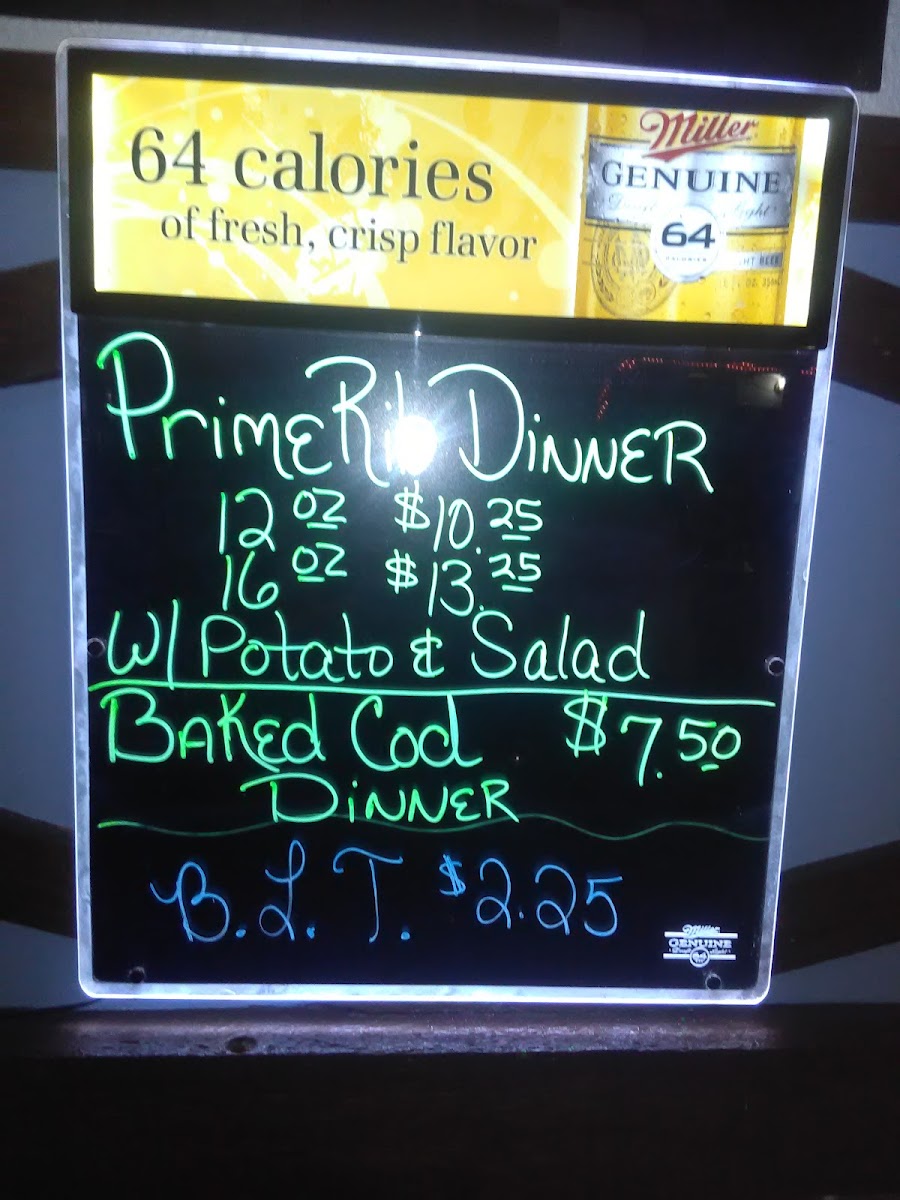 64 calories
of fresh, crisp flavor
Miller
GENUINE
64
CALORIES
Prime Rib Dinner
12 oz $10.25
16 oz $13.25
W/ Potato & Salad
Baked Cod $7.50
Dinner
B.L.T. $2.25
Miller
GENUINE
64